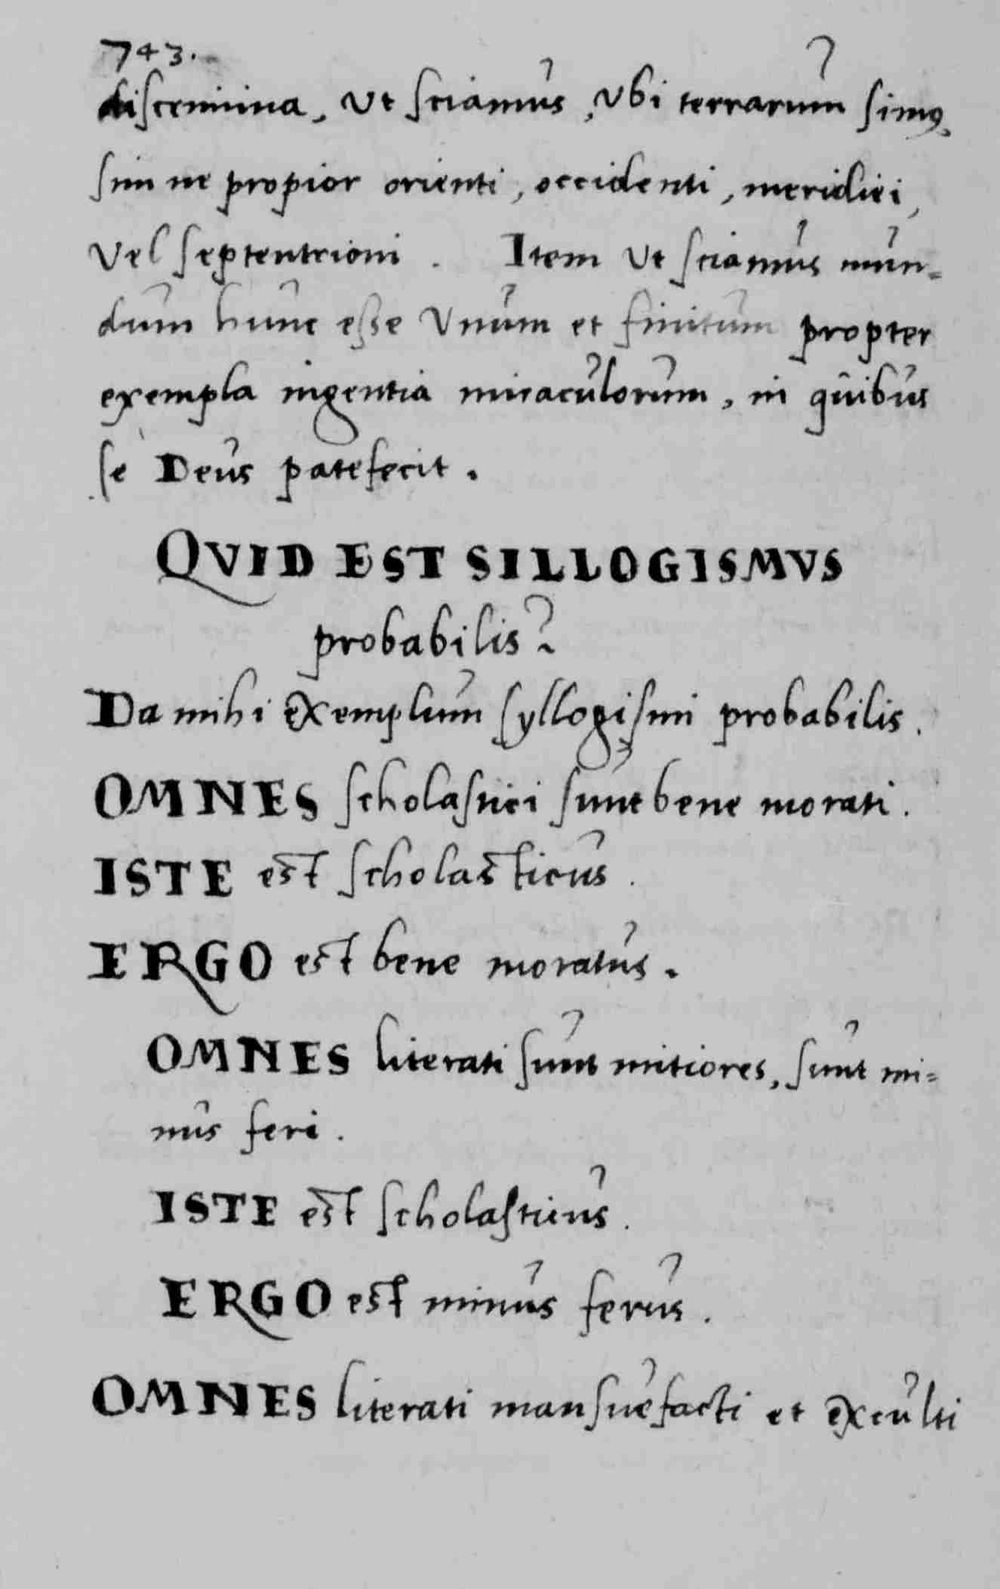 743.
discrimina, Ut sciamus, Ubi terrarum simus
sim ne propior orienti, occidenti, meridiei,
Vel septentrioni. Item Ut sciamus mun=
dum hunc esse Vnum et finitum propter
exempla ingentia miraculorum, in quibus
sè Deus patefecit.
QVID EST SILLOGISMVS
probabilis?
Da mihi exemplum syllogismi probabilis.
OMNES scholastici sunt bene morati.
ISTE est scholasticus.
ERGO est bene moratus.
OMNES literati sunt mitiores, sunt mi=
nus feri.
ISTE est scholasticus.
ERGO est minus ferus.
OMNES literati mansuefacti et exculti